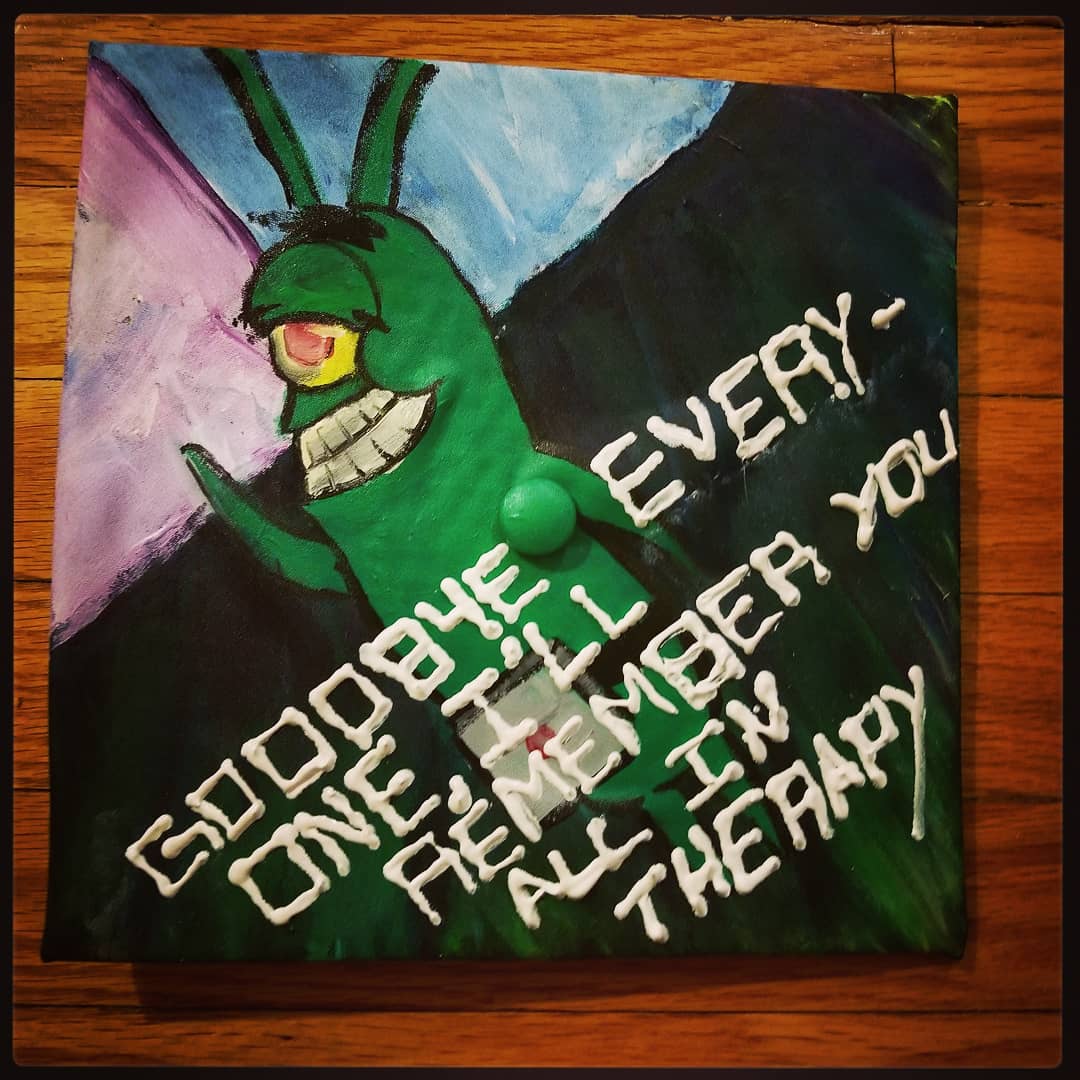 GOODBYE EVERY-
ONE, I'LL
REMEMBER YOU
ALL IN
THERAPY